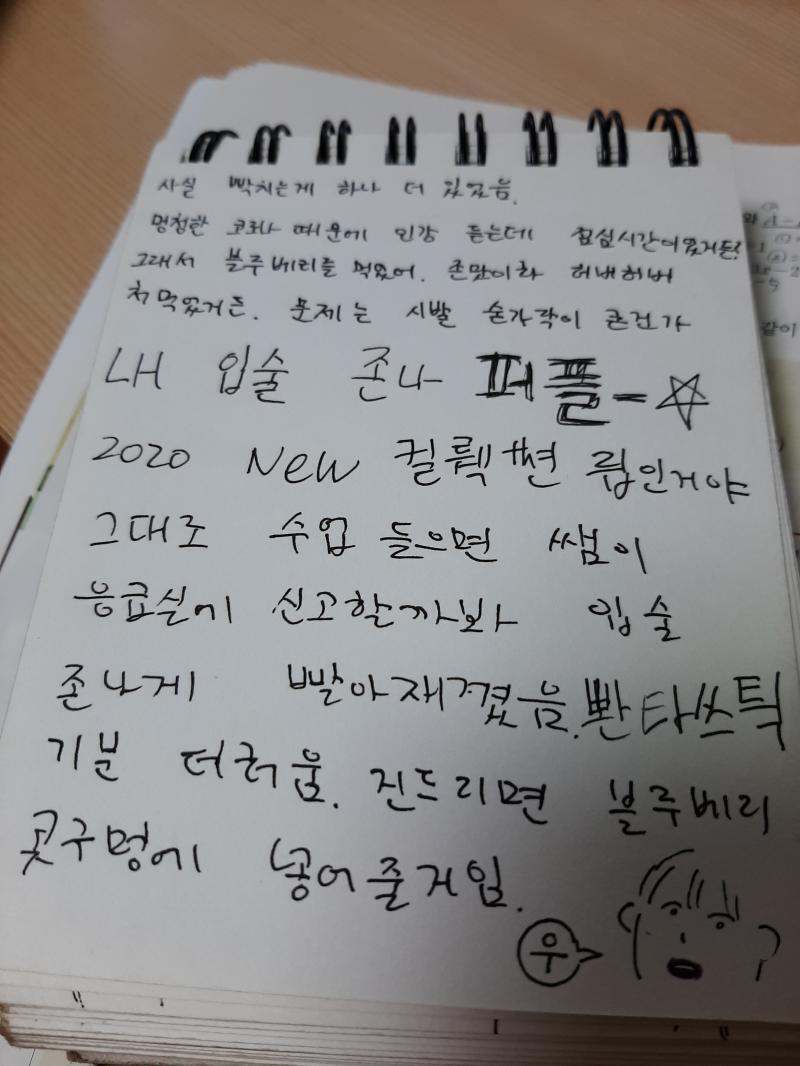 사실 빡치는게 하나 더 있었음.
멍청한 코로나 때문에 인강 듣는데 점심시간이었거든?
그래서 블루베리를 먹었어. 존맛이라 허버허버
처먹었거든. 문제는 시발 숟가락이 큰건가
내 입술 존나 퍼플-☆
2020 New 컬렉션 립인거야
그대로 수업 들으면 쌤이
응급실에 신고할까봐 입술
존나게 빨아재꼈음. 빤타쓰틱
기분 더러움. 진드리면 블루베리
콧구멍에 넣어줄거임.
우